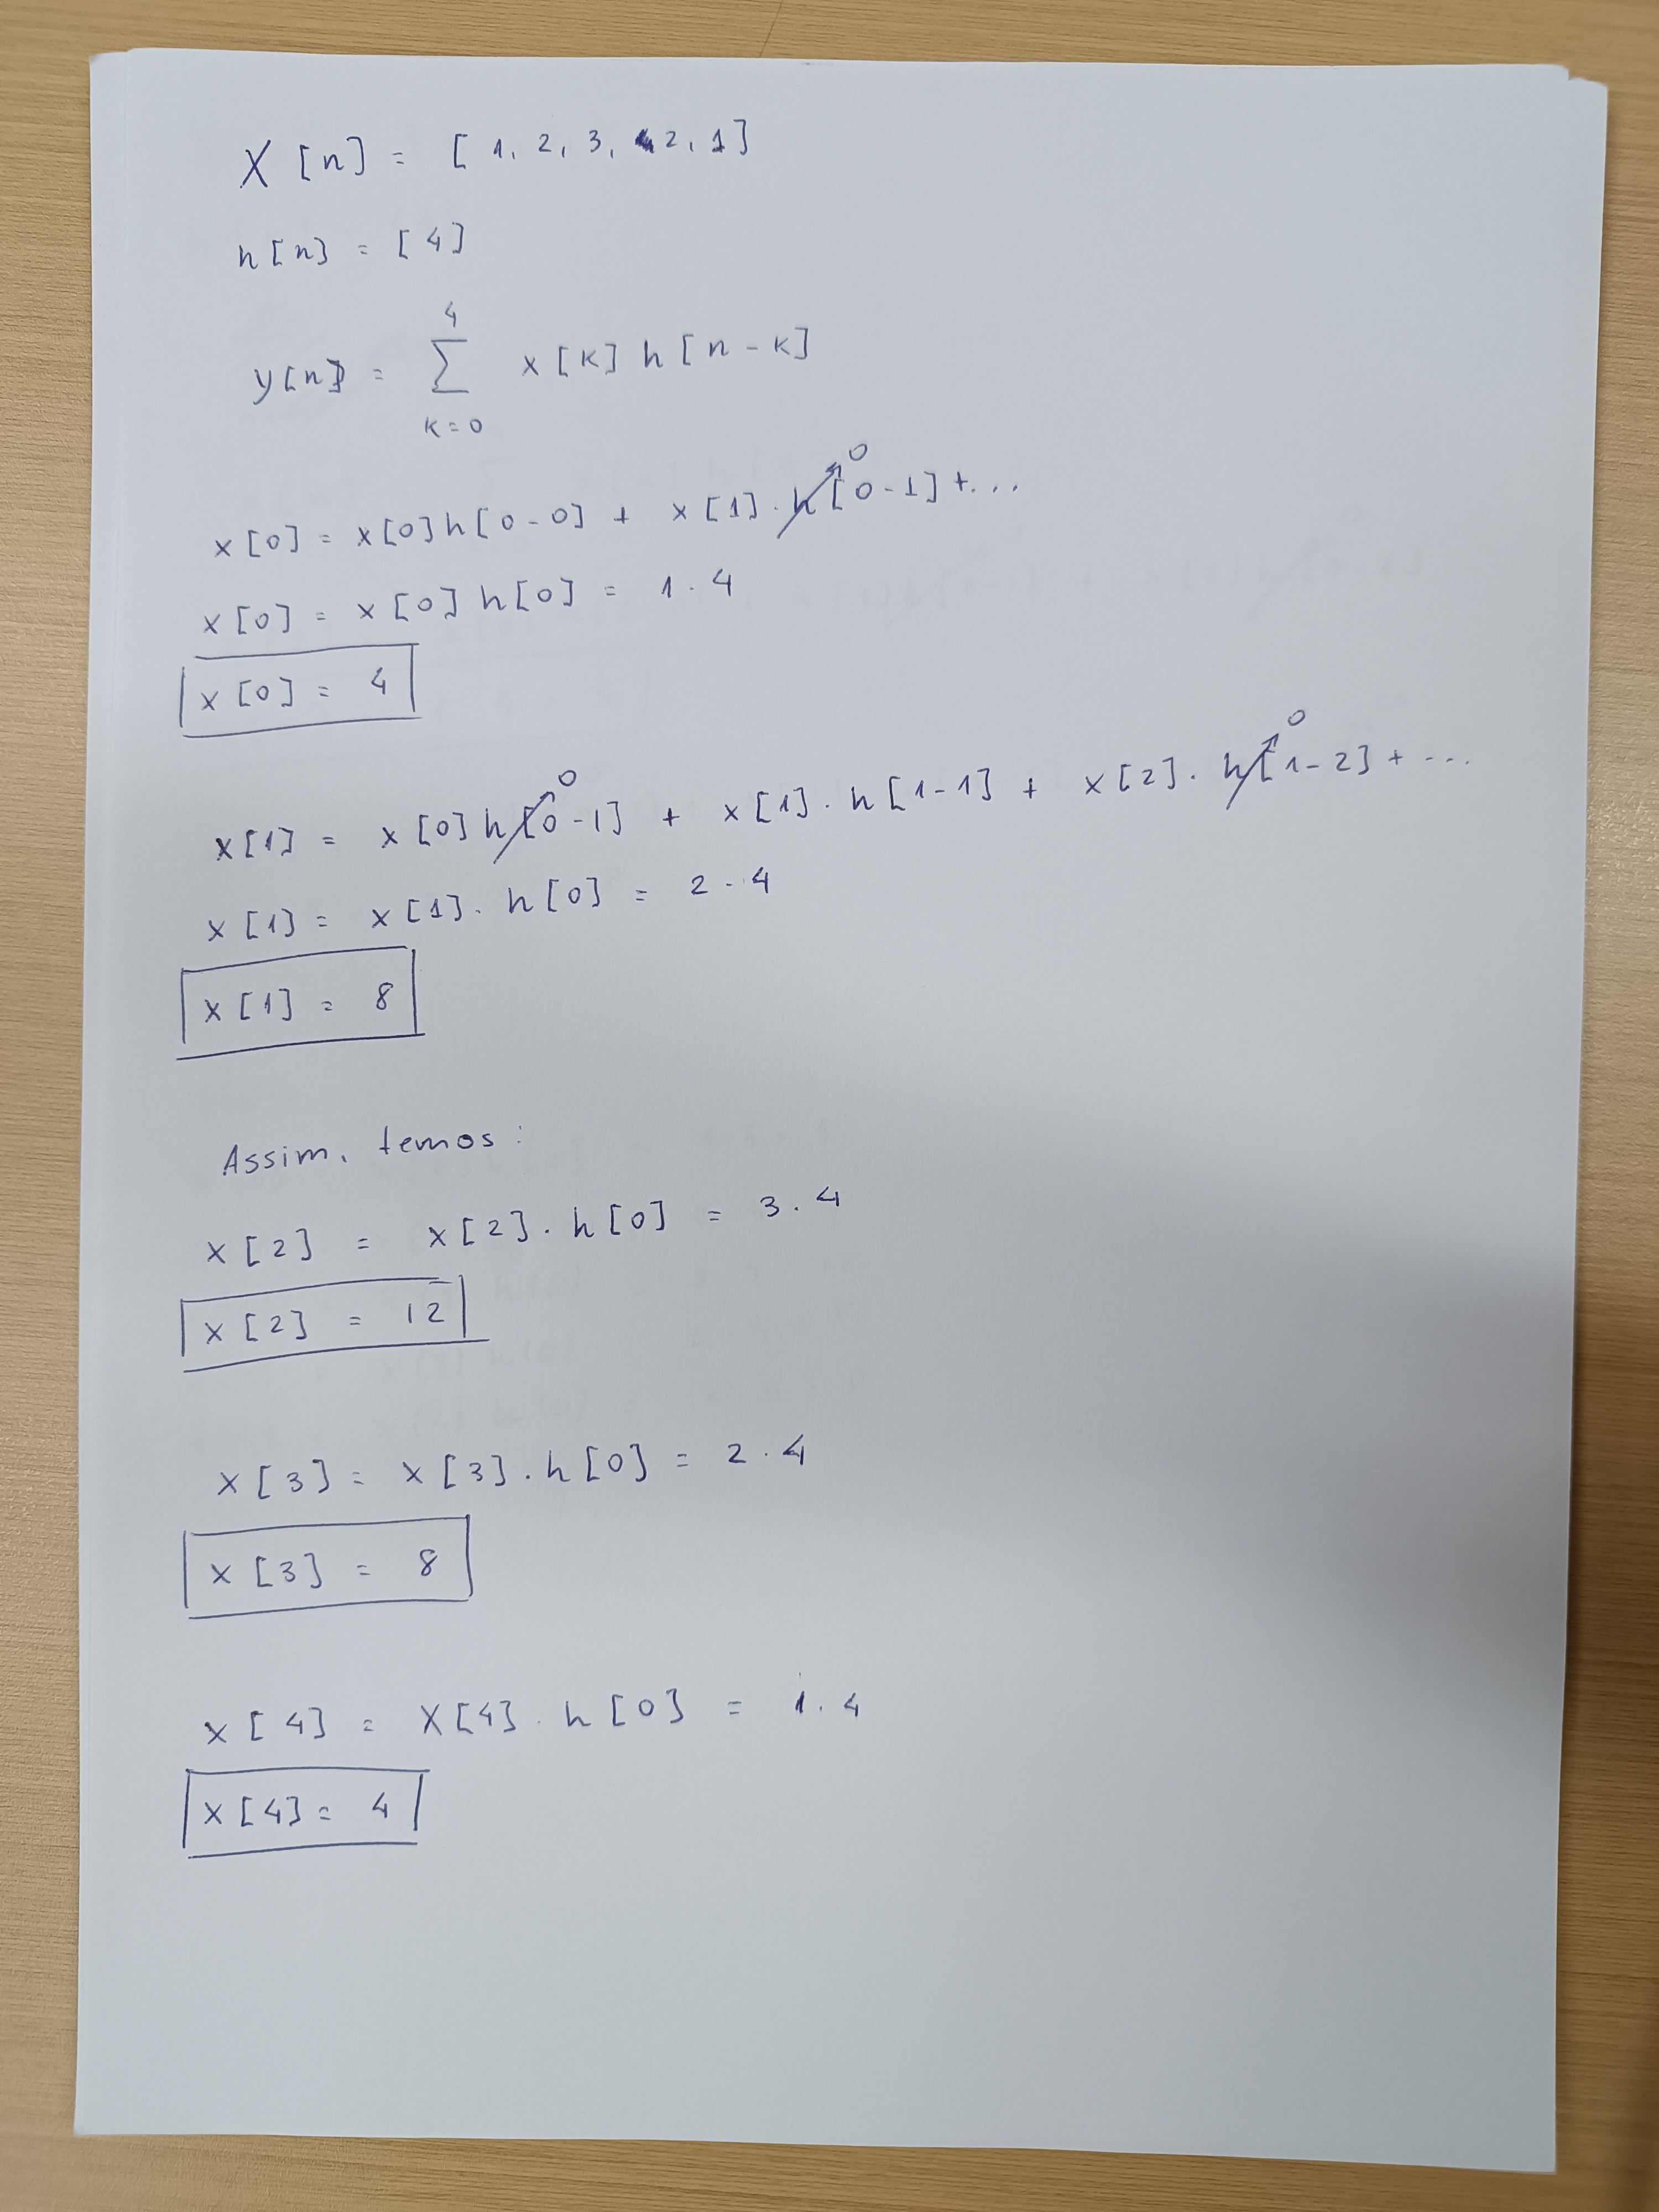 X[n] = [1, 2, 3, 2, 1]
h[n] = [4]
4
y[n] = Σ x[k] h[n-k]
k=0
0
x[0] = x[0]h[0-0] + x[1]·h[0-1] + ...
x[0] = x[0] h[0] = 1·4
x[0] = 4
0 0
x[1] = x[0]h[0-1] + x[1]·h[1-1] + x[2]·h[1-2] + ...
x[1] = x[1]·h[0] = 2·4
x[1] = 8
Assim, temos:
x[2] = x[2]·h[0] = 3·4
x[2] = 12
x[3] = x[3]·h[0] = 2·4
x[3] = 8
x[4] = X[4]·h[0] = 1·4
x[4] = 4